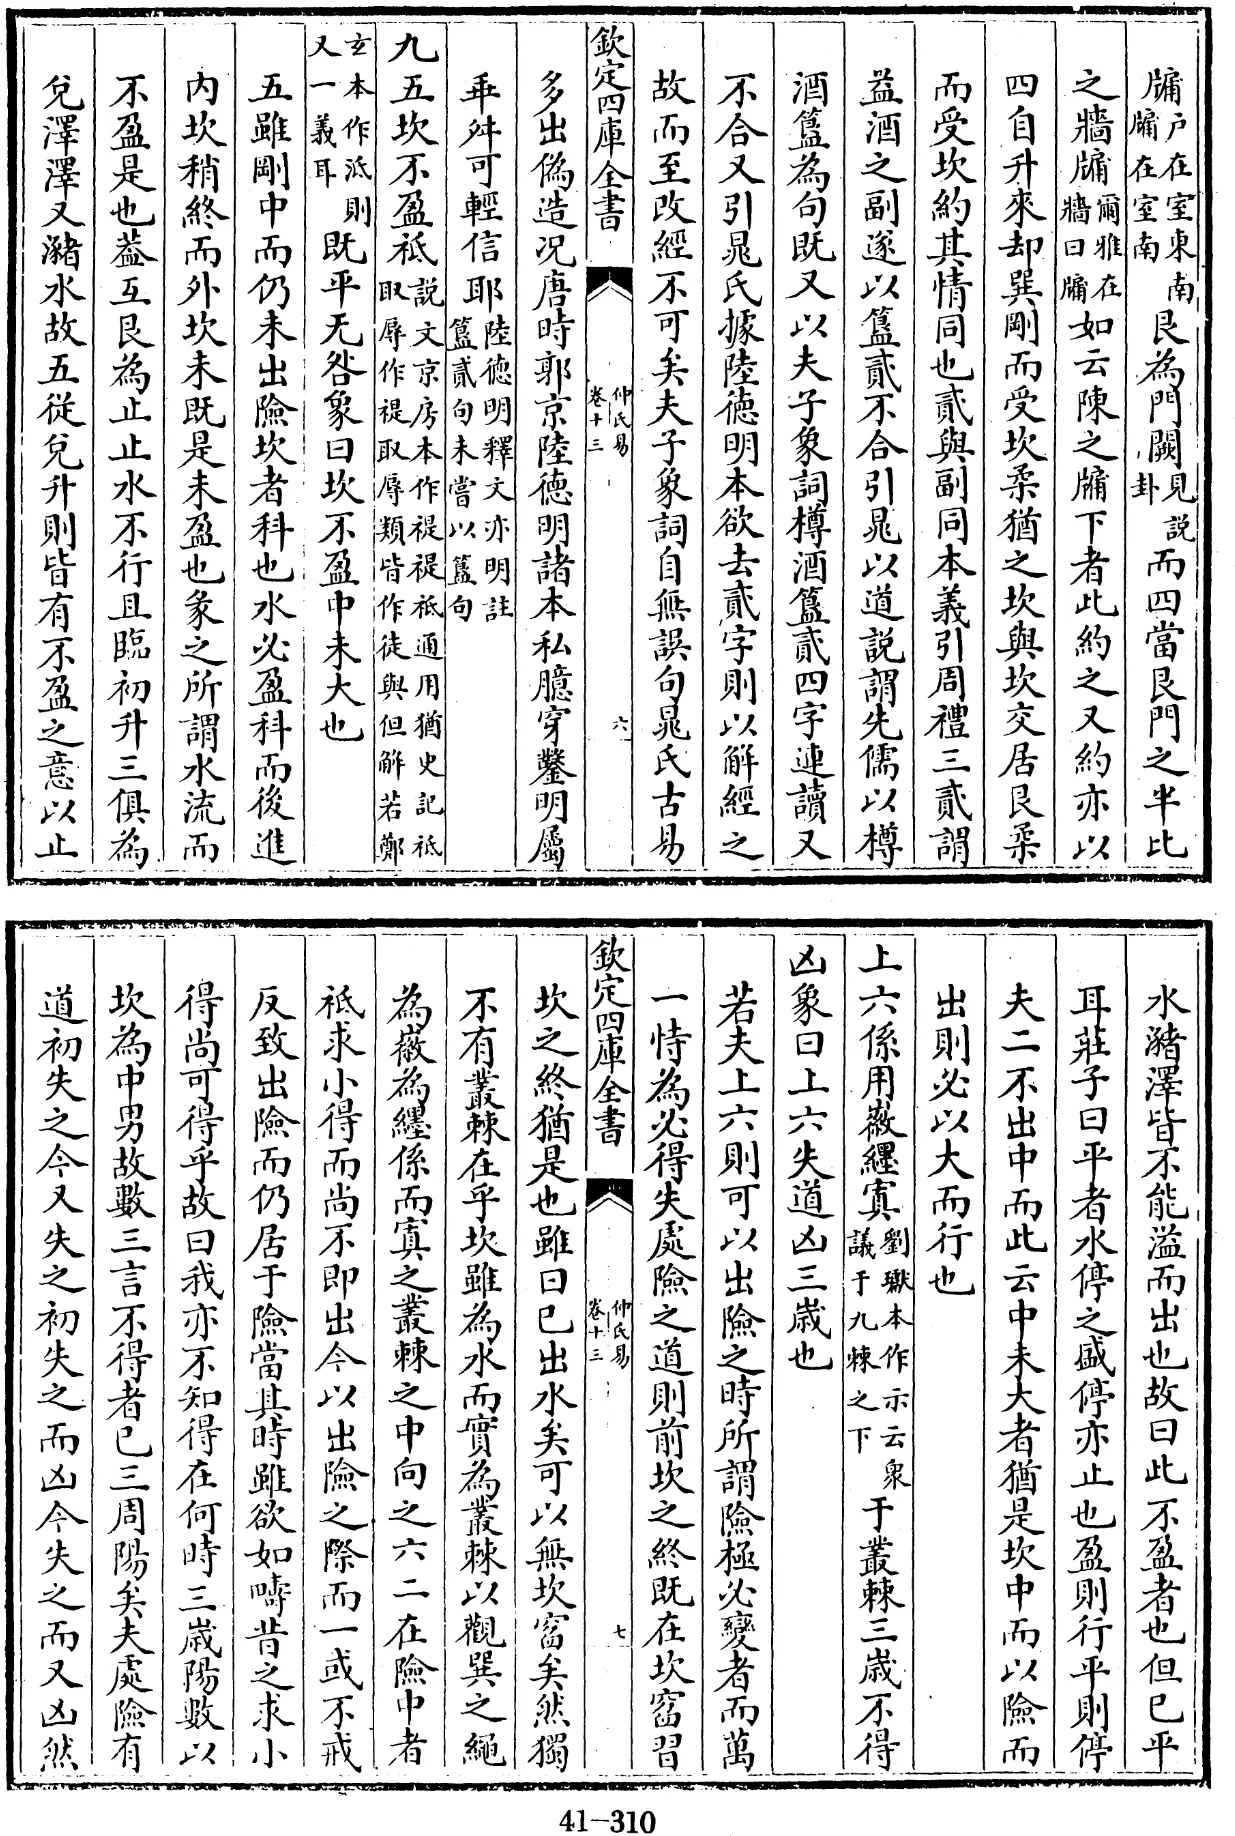 牖户在室東南牖在室南艮為門闕見説卦而四當艮門之半比
之牆牖爾雅在牆曰牖如云陳之牖下者此約之又約亦以
四自升來却巽剛而受坎柔猶之坎與坎交居艮柔
而受坎約其情同也貳與副同本義引周禮三貳謂
益酒之副遂以簋貳不合引晁以道説謂先儒以樽
酒簋為句既又以夫子象詞樽酒簋貳四字連讀又
不合又引晁氏據陸德明本欲去貳字則以解經之
故而至改經不可矣夫子象詞自無誤句晁氏古易
欽定四庫全書
仲氏易
卷十三
六
多出偽造況唐時郭京陸德明諸本私臆穿鑿明屬
乖舛可輕信耶陸德明釋文亦明註簋貳句未嘗以簋句
九五坎不盈祗説文京房本作禔禔祗通用猶史記祗取辱作禔取辱類皆作徒與但解若鄭
玄本作泜則又一義耳既平无咎象曰坎不盈中未大也
五雖剛中而仍未出險坎者科也水必盈科而後進
内坎稍終而外坎未既是未盈也彖之所謂水流而
不盈是也葢互艮為止止水不行且臨初升三俱為
兌澤澤又瀦水故五從兌升則皆有不盈之意以止
水瀦澤皆不能溢而出也故曰此不盈者也但已平
耳莊子曰平者水停之盛停亦止也盈則行平則停
夫二不出中而此云中未大者猶是坎中而以險而
出則必以大而行也
上六係用黻纆寘劉瓛本作示云衆議于九棘之下于叢棘三歲不得
凶象曰上六失道凶三歲也
若夫上六則可以出險之時所謂險極必變者而萬
一恃為必得失處險之道則前坎之終既在坎窞習
欽定四庫全書
仲氏易
卷十三
七
坎之終猶是也雖曰已出水矣可以無坎窞矣然獨
不有叢棘在乎坎雖為水而實為叢棘以觀巽之繩
為黻為纆係而寘之叢棘之中向之六二在險中者
祗求小得而尚不即出今以出險之際而一或不戒
反致出險而仍居于險當其時雖欲如疇昔之求小
得尚可得乎故曰我亦不知得在何時三歲陽數以
坎為中男故數三言不得者已三周陽矣夫處險有
道初失之今又失之初失之而凶今失之而又凶然
41-310